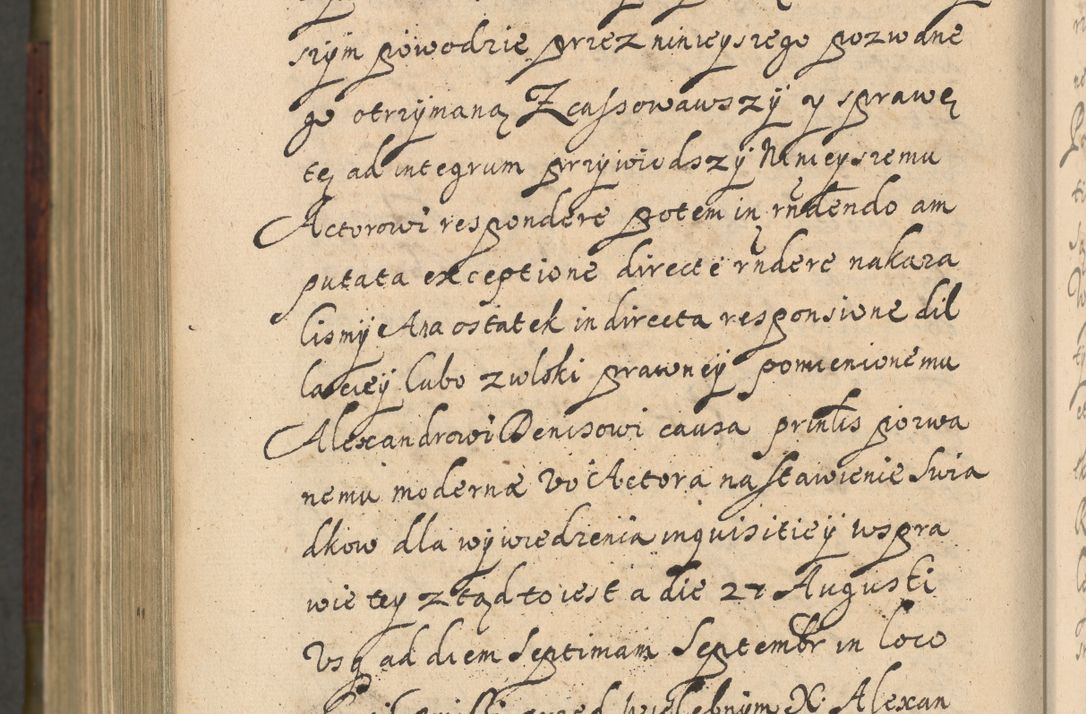 szÿm powodzie przez ninieyszego pozwane
go otrzÿmaną Zcassowawszÿ y sprawę
tę ad integrum przÿwiodszÿ Ninieyszemu
Actorowi respondere potem in rñdendo am
putata exceptione directe rñdere nakaza
lismÿ Ana ostatek indirecta responsione dil
laciey lubo zwłoki prawneÿ pomienionemu
Alexandrowi Denisowi causa prinłis pozwa
nemu modernæ Vo Actora na stawienie Swia
dkow dla wÿwiedzenia inquisitieÿ wspra
wie teÿ ztąd to iest a die 27 Augusti
Vsq ad diem Septimam Septembr in loco
przed wielebnÿm X Alexan